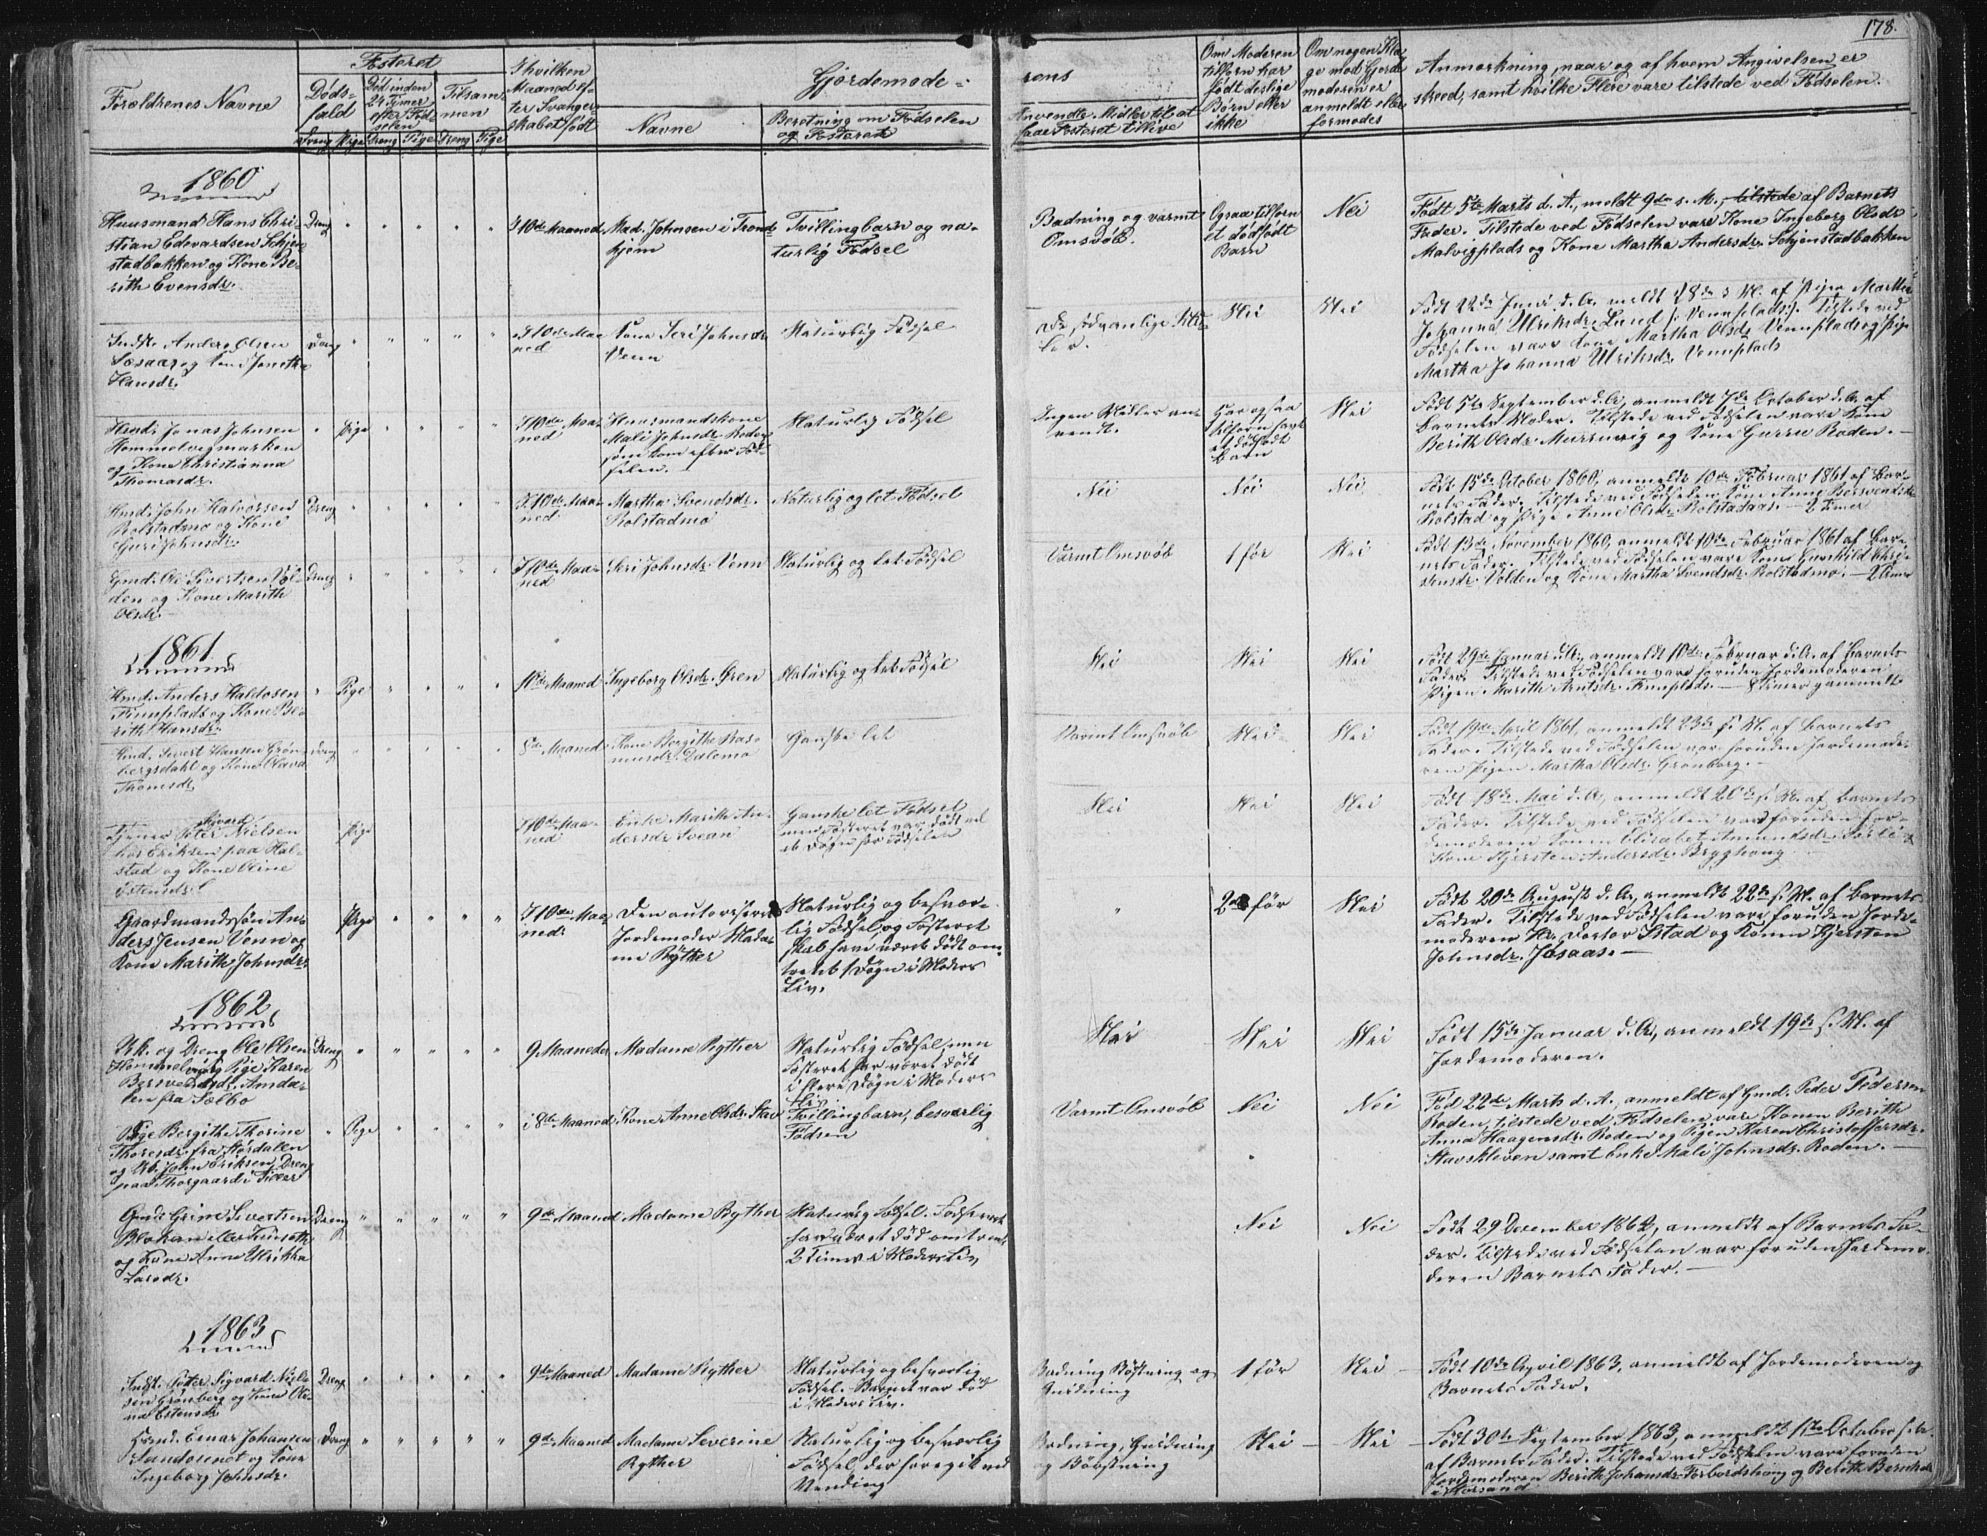 178.
Forældrenes Navne
Fosteret
Døds-
fald
Død inden
24 Timer
efter Fød-
selen
Tilsam-
men
Dreng Pige Dreng Pige Dreng Pige
I hvilken
Maaned ef-
ter Svanger-
skabet født
Gjordemode-
Navne
Beretning om Fødselen
og Fosteret
rens
Anvendte Midler til at
faae Fosteret tillive
Om Moderen
tilforn har
født deslige
Børn eller
ikke
Om nogen Kla-
ge mod Gjorde-
moderen er
anmeldt eller
formodes
Anmærkning, naar og af hvem Angivelsen er
skeed, samt hvilke Flere vare tilstede ved Fødselen.
1860
Huusmand Hans Chri-
stian Edevardsen Schjen-
stadbakken og Kone Be-
rith Evensdr.
Dreng
I 10de Maaned
Mad. Johnsen i Trond-
hjem
Tvillingbarn og na-
turlig Fødsel
Badning og varmt
Omsvøb.
Ogsaa tilforn
et dødfødt
Barn
Nei
Født 5te Marts d. A., meldt 9de s. M., tilstede af Barnets
Fader. Tilstede ved Fødselen vare Kone Ingeborg Olsdr.
Malvigplads og Kone Martha Andersdr. Schjenstadbakken
Indst. Anders Olsen
Sæsaas og Kone Jonetta
Hansdr.
Dreng
I 10de Maa-
ned
Kone Seri Johnsdr.
Venn
Naturlig Fødsel
De sædvanlige Mid-
ler.
Nei
Nei
Født 22de Juni d. A. meldt 28de s. M. af Pige Martha
Johanna Ulriksdr. Lund /: Vennplads :/. Tilstede ved
Fødselen vare Kone Martha Olsdr. Vennplads og Pige
Martha Johanna Ulriksdr. Vennplads
Hmd. Jonas Johnsen
Hommelvigmarken
og Kone Christianna
Thomasdr.
Pige
I 10de Maa-
ned
Huusmandskone
Mali Johnsdr. Roden
som kom efter Fød-
selen.
Naturlig Fødsel
Ingen Midler an-
vendt.
Har ogsaa
tilforn havt
et dødfødt
Barn
Nei
Født 5te September d. A., anmeldt 7de October d. A. af
Barnets Moder. Tilstede ved Fødselen vare Kone
Berith Olsdr. Murruvig og Kone Gurru Roden.
Hmd. John Halvorsen
Rolstadmo og Kone
Guri Johnsdr.
Dreng
I 10de Maa-
ned
Martha Svendsdr.
Rolstadmo
Naturlig og let Fødsel
Nei
Nei
Nei
Født 15de October 1860, anmeldt 10de Februar 1861 af Bar-
nets Fader. Tilstede ved Fødselen Kone Anne Bersvendsdr.
Rolstad og Pige Anne Olsdr. Rolstadaas. — 2 Timer
Gmd. Ole Sivertsen Vol-
den og Kone Marith
Olsdr.
Dreng
I 10de Maa-
ned
Seri Johnsdr. Venn
Naturlig og let Fødsel
Varmt Omsvøb
1 før
Nei
Født 13de November 1860, anmeldt 10de Februar 1861 af Bar-
nets Fader. Tilstede ved Fødselen vare Kone Gunhild Chri-
stensdr. Volden og Kone Martha Svendsdr. Rolstadmo. — 2 Timer
1861
Hmd. Anders Haldosen
Finnplads og Kone Be-
rith Hansdr.
Pige
10de Maaned
Ingeborg Olsdr. Øren
Naturlig og let Fødsel
Nei
Nei
Nei
Født 29de Januar d. A., anmeldt 10de Februar d. A. af Barnets
Fader. Tilstede ved Fødselen vare foruden Jordemoderen
Pigen Marith Arntsdr. Finnplads. — 8 Timer gammelt
Hmd. Sivert Hansen Grøn-
bergsdahl og Kone Olava
Thomsdr.
Dreng
8de Maaned
Kone Bergithe Ras-
musdr. Dalemo
Ganske let
Varmt Omsvøb
Nei
Nei
Født 19de April 1861, anmeldt 23de s. M. af Barnets
Fader. Tilstede ved Fødselen var foruden Jordemode-
ren Pigen Martha Olsdr. Grønberg.
Sivard
Tjener Peter Nielsen
hos Eriksen paa Hal-
stad og Kone Oline
Estensdr.
Pige
I 10de Maa-
ned
Enke Marith An-
dersdr. Svean
Ganske let Fødsel
men Fosteret var dødt vel
et Døgn før Fødselen
Nei
Nei
Nei
Født 18de Mai d. A., anmeldt 20de s. M. af Barnets
Fader. Tilstede ved Fødselen vare foruden Jor-
demoderen Konen Elisabet Amundsdr. Sæther og
Kone Kjersten Andersdr. Brygghoug.
Gaardmandssøn An-
ders Jensen Venn og
Kone Marith Johnsdr.
Pige
I 10de Maa-
ned.
Den autoriserede
Jordemoder Mada-
me Rÿther
Naturlig og besvær-
lig Fødsel, og Fosteret
skal have været dødt om-
trent 1 Døgn i Moders
Liv.
2de før
Nei
Født 20de August d. A., anmeldt 22de s. M. af Barnets
Fader. Tilstede ved Fødselen vare foruden Jorde-
moderen Hr. Doctor Stad og Konen Kjersten
Johnsdr. Jøsaas.
1862
U.K. og Dreng Ole Olsen
Hommelvig og Pige Karen
Bersvendsdr. Amda-
len fra Sælbo
Dreng
9 Maaneder
Madame Ryther
Naturlig Fødsel, men
Fosteret har været dødt
i flere Døgn i Moders
Liv.
Nei
Nei
Nei
Født 15de Januar d. A., anmeldt 19de s. M. af
Jordemoderen.
Pige Bergithe Thorine
Thoresdr. fra Størdalen
og Uk. John Eriksen Dreng
paa Thorgaard i Tiller
Pige
i 8de Maaned
Kone Anne Olsdr. Stav
Tvillingbarn, besværlig
Fødsen
Varmt Omsvøb
Nei
Nei
Fød 22de Marts d. A., anmeldt af Gmd. Peder Pedersen
Roden, tilstede ved Fødselen vare Konen Berith
Anna Haagensdr. Roden og Pigen Karen Christoffersdr.
Stavskleven samt Enke Mali Johnsdr. Roden.
Gmd. Grim Sivertsen
og Kone Anne Ulrikka
Larsdr.
Dreng
9de Maaned
Madame Ryther
Naturlig Fødsel. Fosteret
har været død omtrent
2 Timer i Moders Liv
Nei
Nei
Født 29 December 1862, anmeldt af Barnets Fa-
der. Tilstede ved Fødselen var foruden Jordemo-
deren Barnets Fader.
1863
Indst. Peter Sigvard Niel-
sen Grønberg og Kone Oli-
na Estensdr.
Dreng
9de Maaned
Madame Ryther
Naturlig og besværlig
Fødsel. Barnet var død
i Moders Liv.
Badning Børstning og
Gnidning
1 før
Nei
Født 10de April 1863, anmeldt af Jordemoderen og
Barnets Fader.
Hmd. Einar Johansen
Sandosenet og Kone
Ingeborg Johnsdr.
Dreng
9de Maaned
Madame Severine
Ryther
Naturlig og besværlig
Fødsel der foregik ved
Vending
Badning, Gnidning
og Børstning
Nei
Nei
Født 30te September 1863, anmeldt 11te October s. A.
af Barnets Fader. Tilstede ved Fødselen vare foruden
Jordemoderen Berith Johansdr. Forbordshoug og Berith Berntsdr.
i Morsand